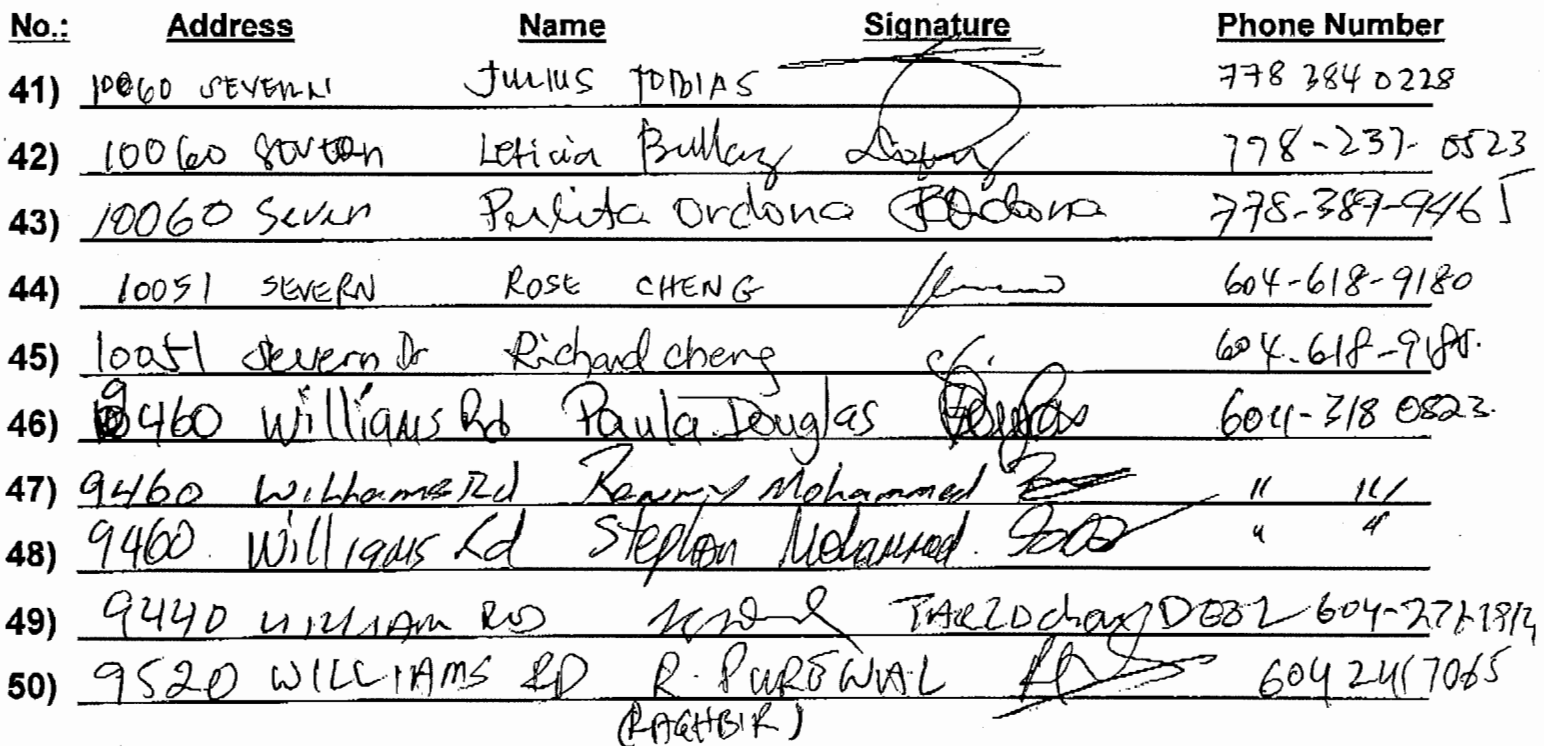 No.: Address Name Signature Phone Number
41) 10060 SEVERN JULIUS TOBIAS 778 384 0228
42) 10060 Leticia 778-237-0523
43) 10060 Seven Perlita Ordona 778-389-9465
44) 10051 SEVERN ROSE CHENG 604-618-9180
45) 10051 Severn Dr Richard cheng 604-618-9180.
46) 9460 Williams Rd Paula Douglas 604-318 0823.
47) 9460 Williams Rd Mohammed " "
48) 9460. Williams Rd Stephan Mohammed. " "
49) 9440 WILLIAM RD
50) 9520 WILLIAMS RD R. PUREWAL 604 241 7065
(RAGHBIR)